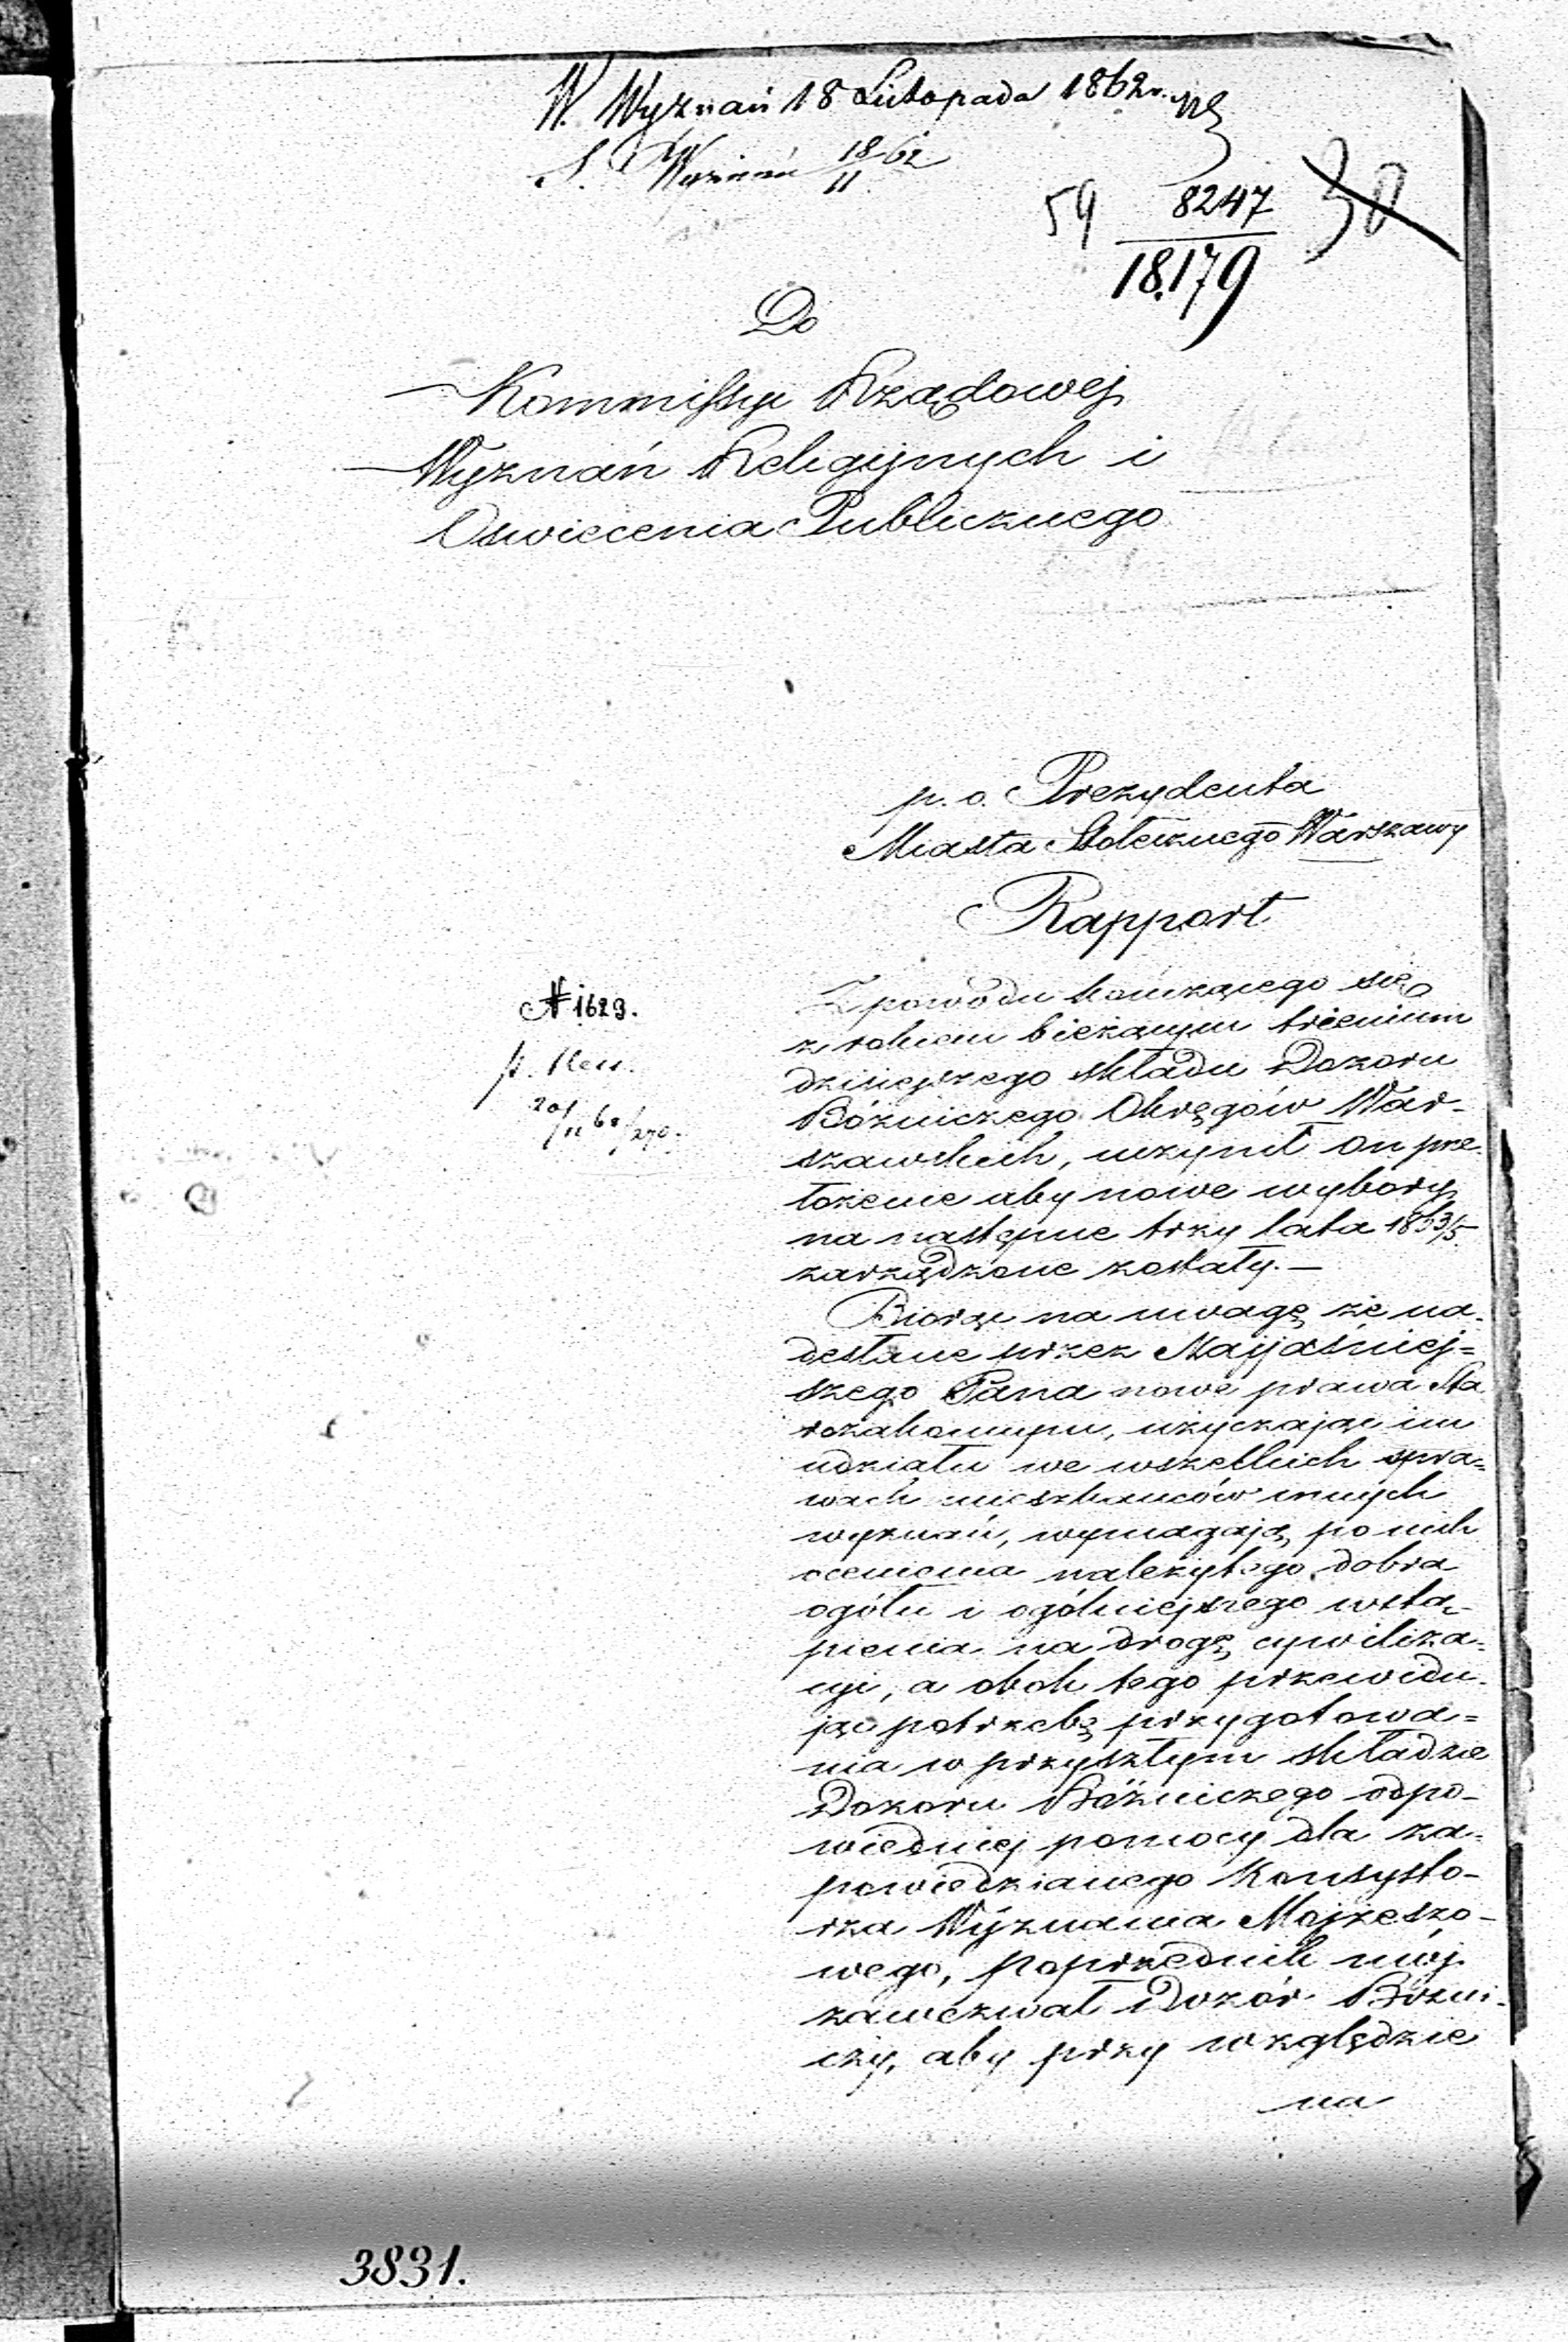 W. Wyznań 18 Listopada 1862 r.
S. Wyznań 18/11 62
59 8247 30
18.179
Do
Kommissyi Rządowej
Wyznań Religijnych i
Oswiecenia Publicznego
p. o. Prezydenta
Miasta Stołecznego Warszawy
Rapport
N 1629.
Z powodu kończącego się
z rokiem bieżącym triennium
dzisiejszego składu Dozoru
Bóżniczego Okręgów War-
szawskich, uczynił on prze
łożenie aby nowe wybory
na następne trzy lata 1863/5
zarządzone zostały. —
Biorąc na uwagę że na-
desłane przez Najjaśniej=
szego Pana nowe prawa Sta
rozakonnym, użyczając im
udziału we wszelkich spra=
wach mieszkańców innych
wyznań, wymagają po nich
ocenienia należytego dobra
ogółu i ogólniejszego wstą-
pienia na drogę cywiliza=
cyi, a obok tego przewidu-
jąc potrzebę przygotowa=
nia w przyszłym składzie
Dozoru Bóżniczego odpo-
wiedniej pomocy dla za-
powiedzianego Konsysto-
rza Wyznania Mojżeszo-
wego, poprzednik mój
zawezwał Dozór Bóżni-
czy, aby przy względzie
na
3831.